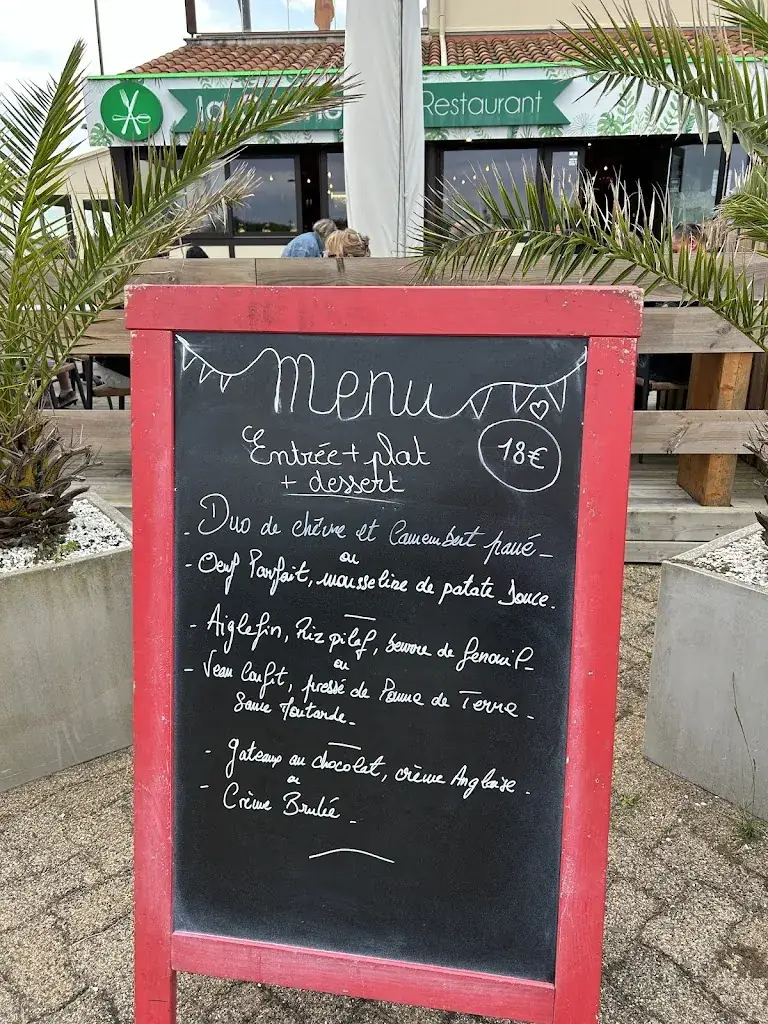 la
Restaurant
Menu
Entrée + plat
+ dessert
18€
- Duo de chèvre et Camembert pané -
ou
- Oeuf Parfait, mousseline de patate douce.
- Aiglefin, Riz pilaf, beurre de fenouil -
ou
- Veau Confit, pressé de Pomme de Terre -
Sauce Moutarde -
- gateaux au chocolat, crème Anglaise.
ou
- Crème Brulée -